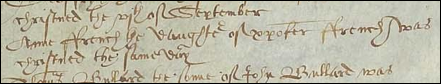 christned the vth of September
Anne ffrench the daughter of xpofer ffrench was
christned the same day
Bullard the sonne of John Bullard was